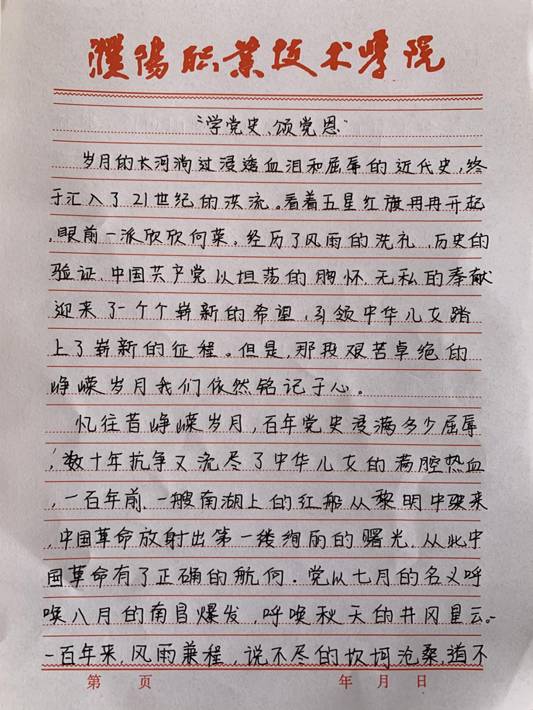 濮阳职业技术学院
“学党史、颂党恩”
岁月的长河淌过浸透血泪和屈辱的近代史，终
于汇入了21世纪的洪流。看着五星红旗冉冉开起
，眼前一派欣欣何荣。经历了风雨的洗礼，历史的
验证，中国共产党以坦荡的胸怀、无私的奉献
迎来了一个个崭新的希望，引领中华儿女踏
上了崭新的征程。但是，那段艰苦卓绝的
峥嵘岁月我们依然铭记于心。
忆往昔峥嵘岁月，百年党史浸满多少屈辱
，数十年抗争又流尽了中华儿女的满腔热血
，一百年前，一艘南湖上的红船从黎明中驶来
，中国革命放射出第一缕绚丽的曙光，从此中
国革命有了正确的航向。党从七月的名义呼
唤八月的南昌爆发，呼唤秋天的井冈星云。
一百年来，风雨兼程，说不尽的坎坷沧桑，道不
第 页 年 月 日